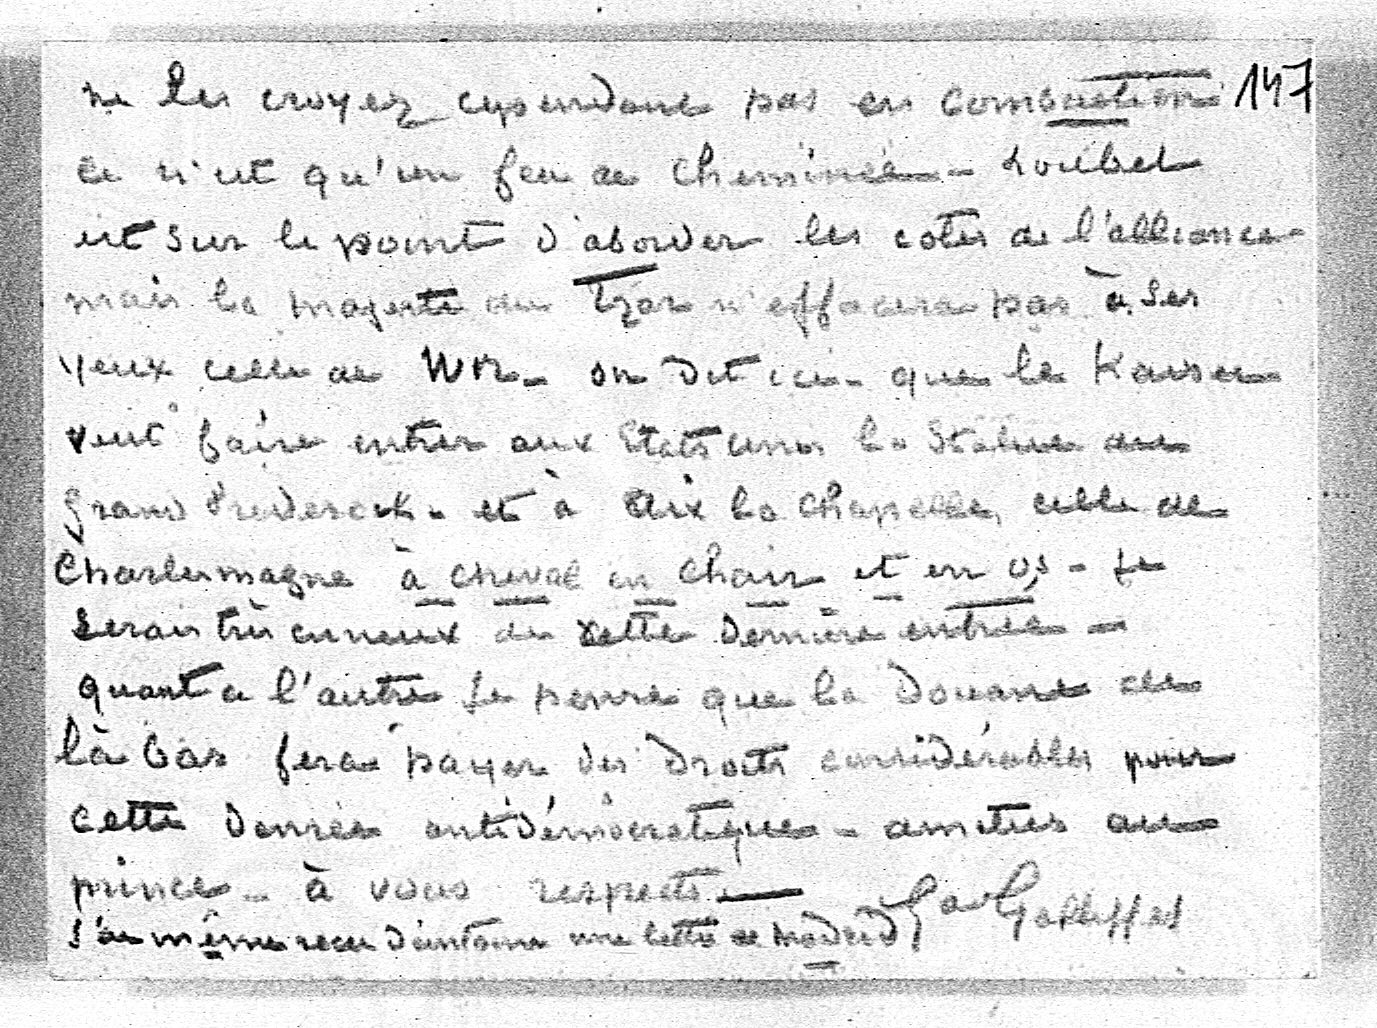 ne les croyez cependant pas en combustion 147
ce n'est qu'un feu de cheminée - Loubet
est sur le point d'aborder les cotes de l'alliance
mais la majesté du Tzar n'effacera pas à ses
yeux celle de WR - on dit ici - que le Kaiser
veut faire entrer aux Etats Unis la Statue du
grand Frederick - et à Aix la Chapelle, celle de
Charlemagne à cheval en chair et en os - je
serais très curieux de cette dernière entrée -
quant à l'autre je pense que la Douane de
là bas fera payer des Droits considérables pour
cette Denrée antidémocratique - amitiés au
prince - à vous respects -
j'ai même reçu d'Antoine une lettre de Madrid Gal Galliffet